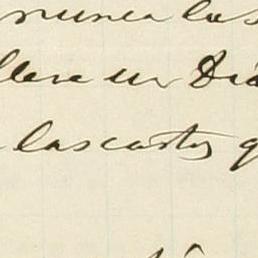 nunca las
llere un Dia
lascartas q